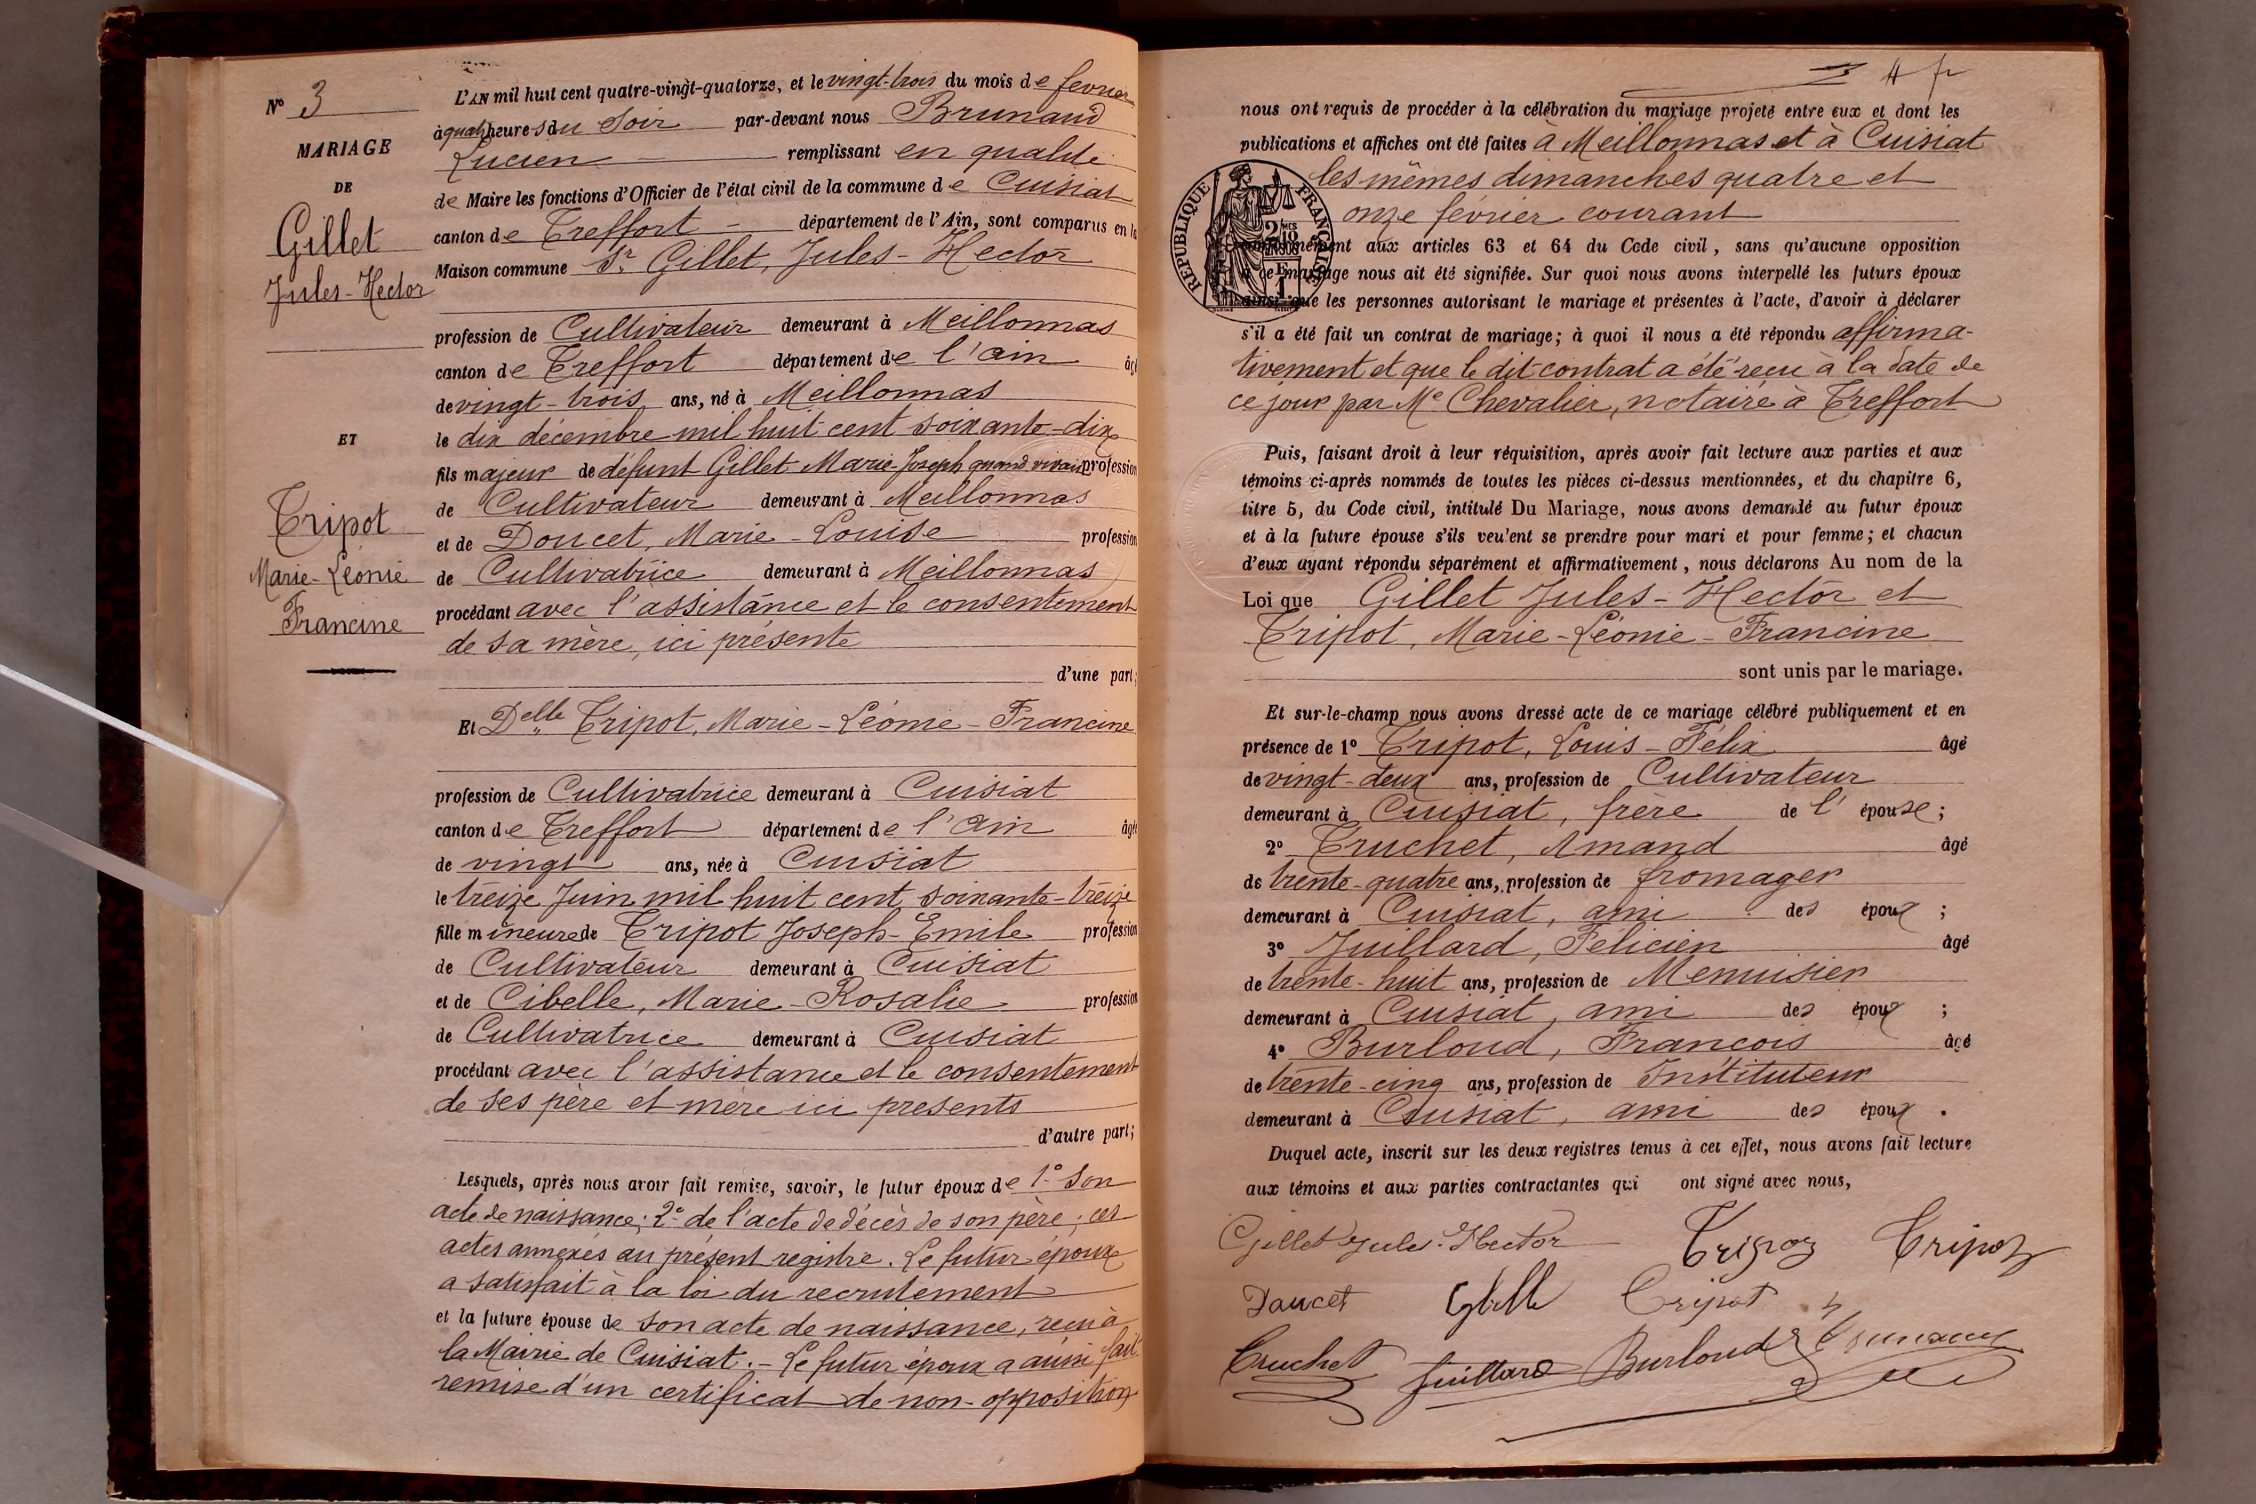 N° 3
MARIAGE
DE
Gillet
Jules-Hector
ET
Tripot
Marie-Léonie
Francine
L'AN mil huit cent quatre-vingt-quatorze, et le vingt-trois du mois de fevrier
à quatre heures du Soir par-devant nous Brunaud
Lucien remplissant en qualité
de Maire les fonctions d'Officier de l'état civil de la commune de Cuisiat
canton de Treffort département de l'Ain, sont comparus en la
Maison commune Sr Gillet, Jules-Hector
profession de Cultivateur demeurant à Meillonnas
canton de Treffort département de l'ain âgé
de vingt-trois ans, né à Meillonnas
le dix décembre mil huit cent soixante-dix
fils majeur de défunt Gillet Marie-Joseph quand vivait profession
de Cultivateur demeurant à Meillonnas
et de Doucet, Marie-Louise profession
de Cultivatrice demeurant à Meillonnas
procédant avec l'assistance et le consentement
de sa mère, ici présente
d'une part;
Et Delle Tripot, Marie-Léonie-Francine
profession de Cultivatrice demeurant à Cuisiat
canton de Treffort département de l'ain âgée
de vingt ans, née à Cuisiat
le treize Juin mil huit cent soixante-treize
fille mineure de Tripot Joseph-Emile profession
de Cultivateur demeurant à Cuisiat
et de Cibelle, Marie-Rosalie profession
de Cultivatrice demeurant à Cuisiat
procédant avec l'assistance et le consentement
de ses père et mère ici présents
d'autre part;
Lesquels, après nous avoir fait remise, savoir, le futur époux de 1° Son
acte de naissance; 2° de l'acte de décès de son père; ces
actes annexés au présent registre. Le futur époux
a satisfait à la loi du recrutement
et la future épouse de son acte de naissance, reçu à
la Mairie de Cuisiat.- Le futur époux a aussi fait
remise d'un certificat de non-opposition
nous ont requis de procéder à la célébration du mariage projeté entre eux et dont les
publications et affiches ont été faites à Meillonnas et à Cuisiat
les mêmes dimanches quatre et
onze février courant
RÉPUBLIQUE FRANÇAISE
conformément aux articles 63 et 64 du Code civil, sans qu'aucune opposition
à ce mariage nous ait été signifiée. Sur quoi nous avons interpellé les futurs époux
ainsi que les personnes autorisant le mariage et présentes à l'acte, d'avoir à déclarer
s'il a été fait un contrat de mariage; à quoi il nous a été répondu affirma-
tivement et que le dit contrat a été reçu à la date de
ce jour par Me Chevalier, notaire à Treffort
Puis, faisant droit à leur réquisition, après avoir fait lecture aux parties et aux
témoins ci-après nommés de toutes les pièces ci-dessus mentionnées, et du chapitre 6,
titre 5, du Code civil, intitulé Du Mariage, nous avons demandé au futur époux
et à la future épouse s'ils veulent se prendre pour mari et pour femme; et chacun
d'eux ayant répondu séparément et affirmativement, nous déclarons Au nom de la
Loi que Gillet Jules-Hector et
Tripot, Marie-Léonie-Francine
sont unis par le mariage.
Et sur-le-champ nous avons dressé acte de ce mariage célébré publiquement et en
présence de 1° Tripot, Louis-Félix âgé
de vingt-deux ans, profession de Cultivateur
demeurant à Cuisiat, frère de l'épouse;
2° Truchet, Amand âgé
de trente-quatre ans, profession de fromager
demeurant à Cuisiat, ami des époux;
3° Juillard, Félicien âgé
de trente-huit ans, profession de Menuisier
demeurant à Cuisiat, ami des époux;
4° Burloud, Francois âgé
de trente-cinq ans, profession de Instituteur
demeurant à Cuisiat, ami des époux.
Duquel acte, inscrit sur les deux registres tenus à cet effet, nous avons fait lecture
aux témoins et aux parties contractantes qui ont signé avec nous,
Gillet Jules-Hector Tripoz Tripoz
Doucet Cibelle Tripot
Truchet Juillard Burloud Brunaud